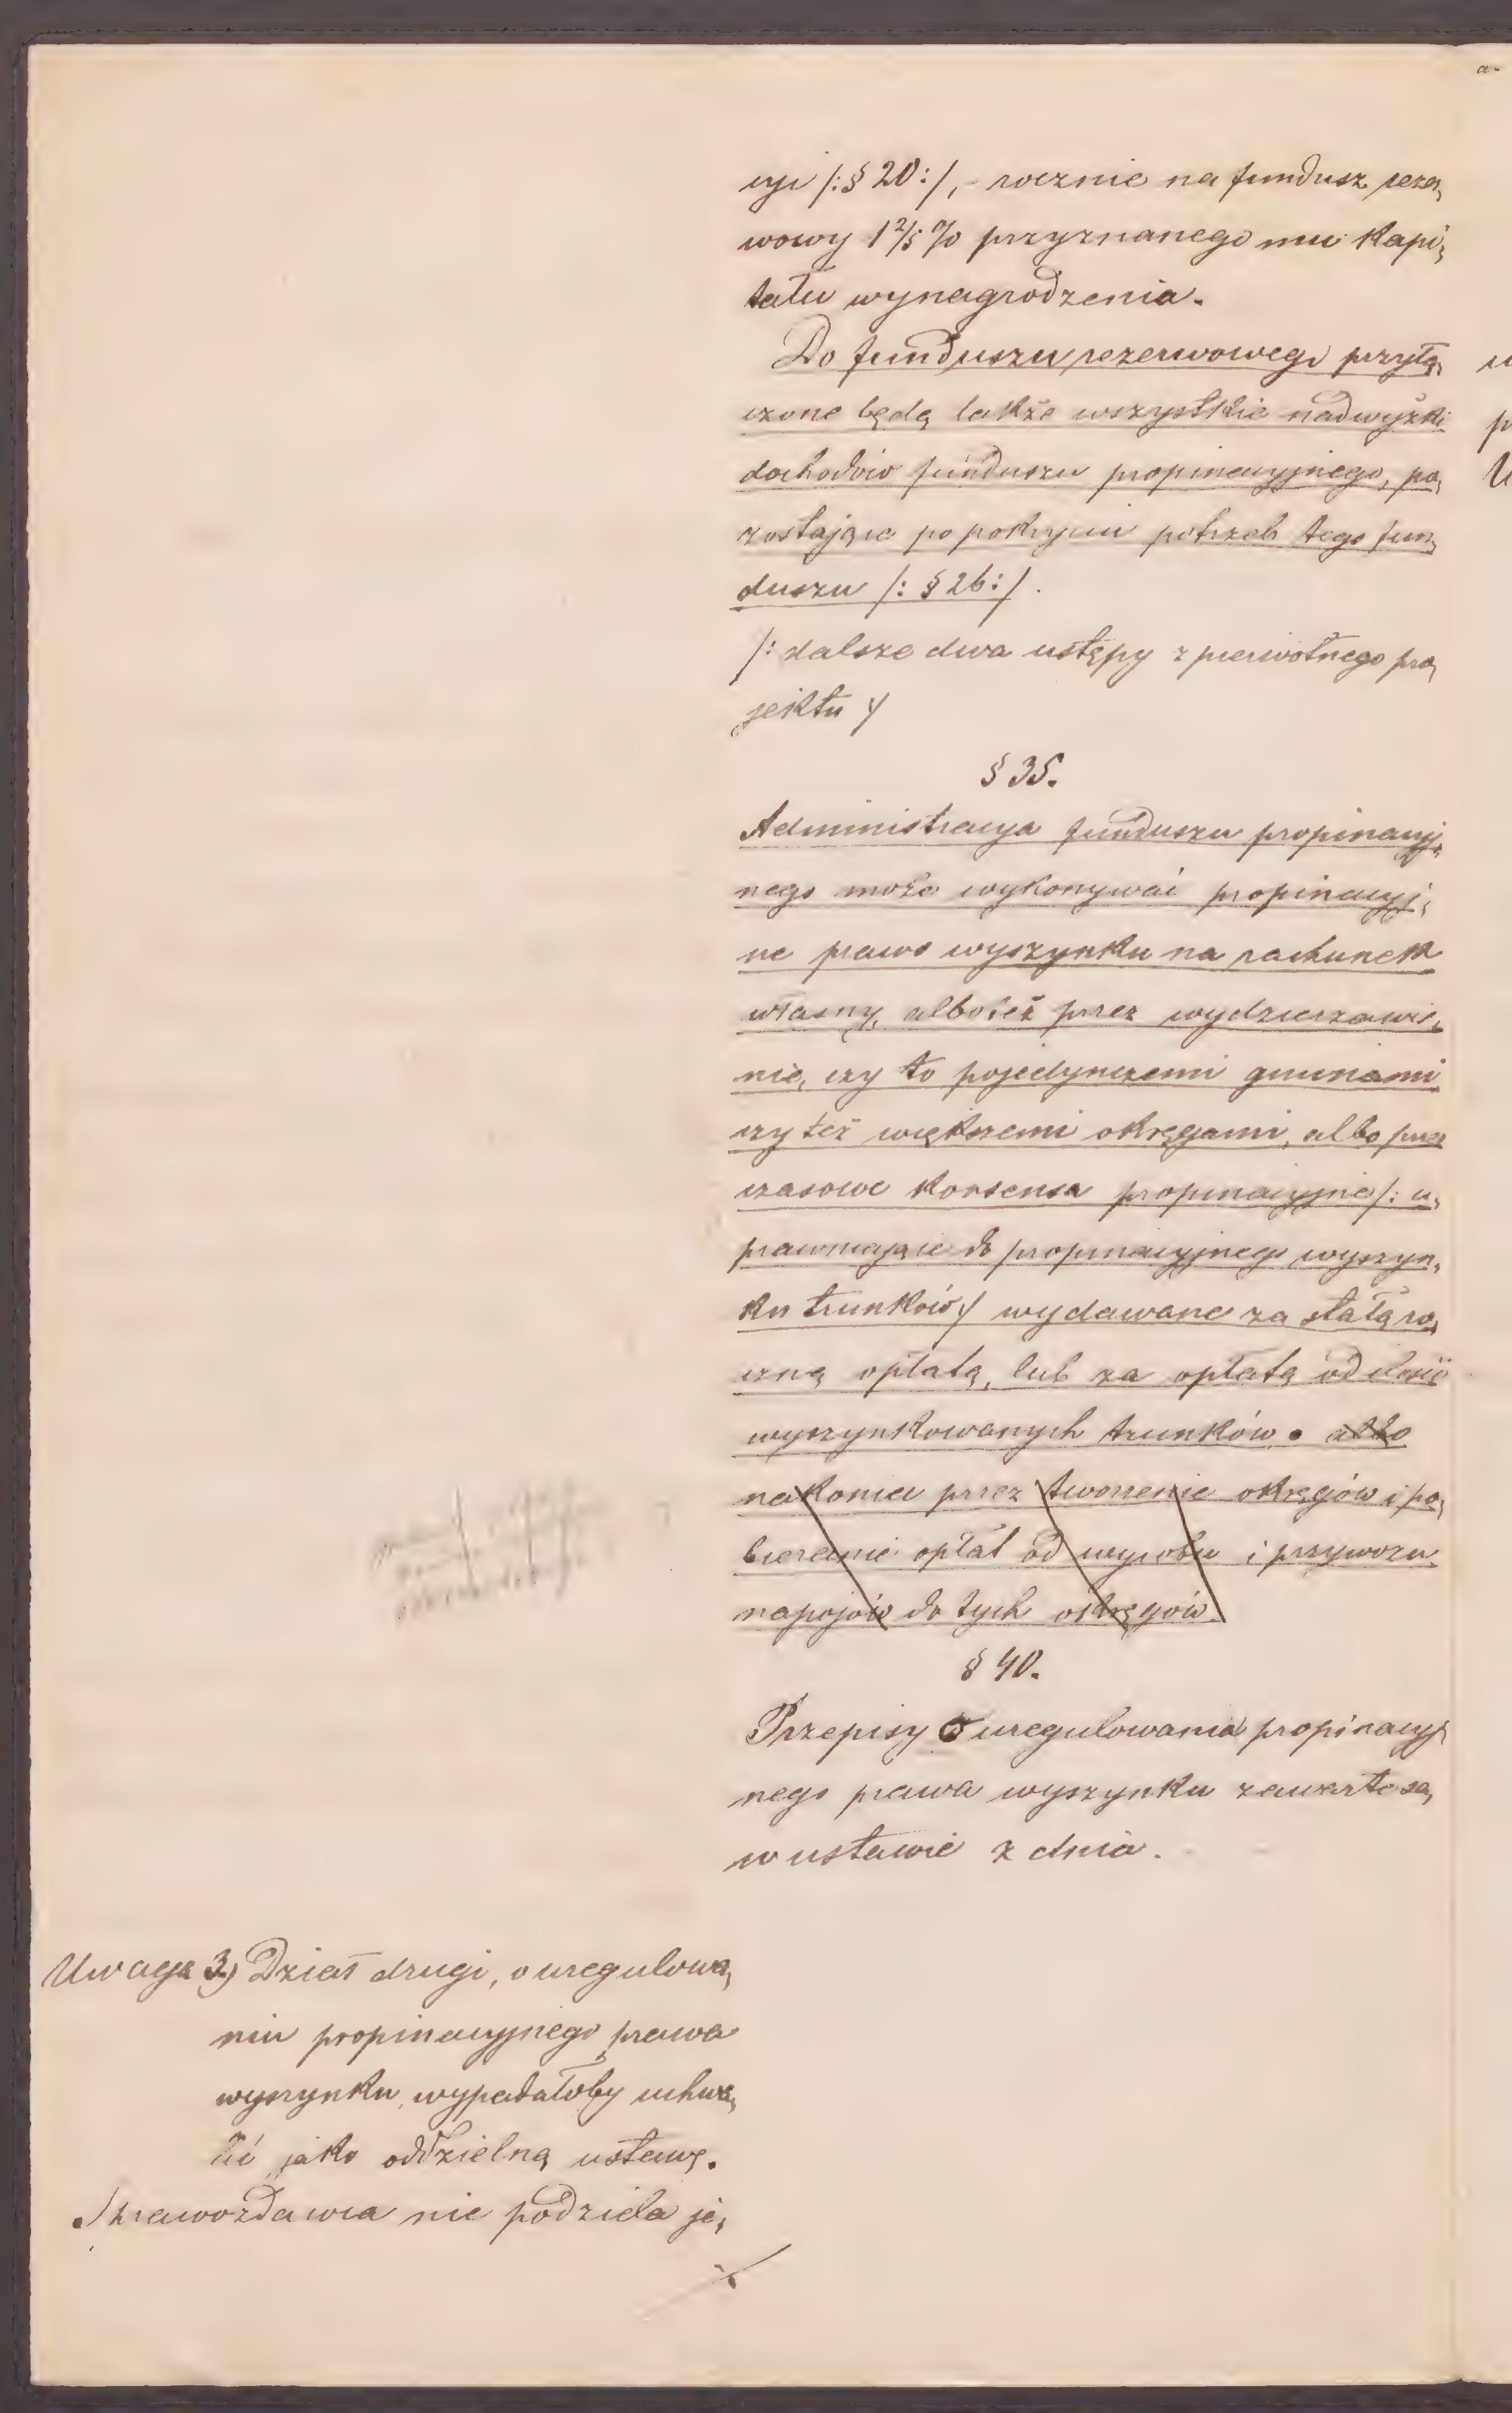 cyi /:§ 20:/, - rocznie na fundusz rezer,
wowy 1 2/5 % przyznanego mu kapi,
tału wynagrodzenia.
Do funduszu rezerwowego przyłą,
czone będą także wszystkie nadwyżki
dochodów funduszu propinacyjnego, po,
zostające po pokryciu potrzeb tego fun,
duszu /: § 26:/.
/: dalsze dwa ustępy z pierwotnego pro,
jektu :/
§ 35.
Administracya funduszu propinacyj,
nego może wykonywać propinacyj,
ne prawo wyszynku na rachunek
własny, alboteż przez wydzierzawie,
nie, czy to pojedynczemi gminami
czy też większemi okręgami, albo przez
czasowe konsensa propinacyjne /: u,
prawniające do propinacyjnego wyszyn,
ku trunków :/ wydawane za stałą ro,
czną opłatą, lub za opłatą od ilości
wyszynkowanych trunków. albo
nakoniec przez tworzenie okręgów i po,
bieranie opłat od wyrobu i przywozu
napojów do tych okręgów.
§ 40.
Przepisy o uregulowania propinacyj,
nego prawa wyszynku zawarte są,
w ustawie z dnia.
Uwaga 3) Dział drugi, o uregulowa,
niu propinacyjnego prawa
wyszynku, wypadałoby uchwa,
lić jako oddzielną ustawę.
Sprawozdawca nie podziela je,